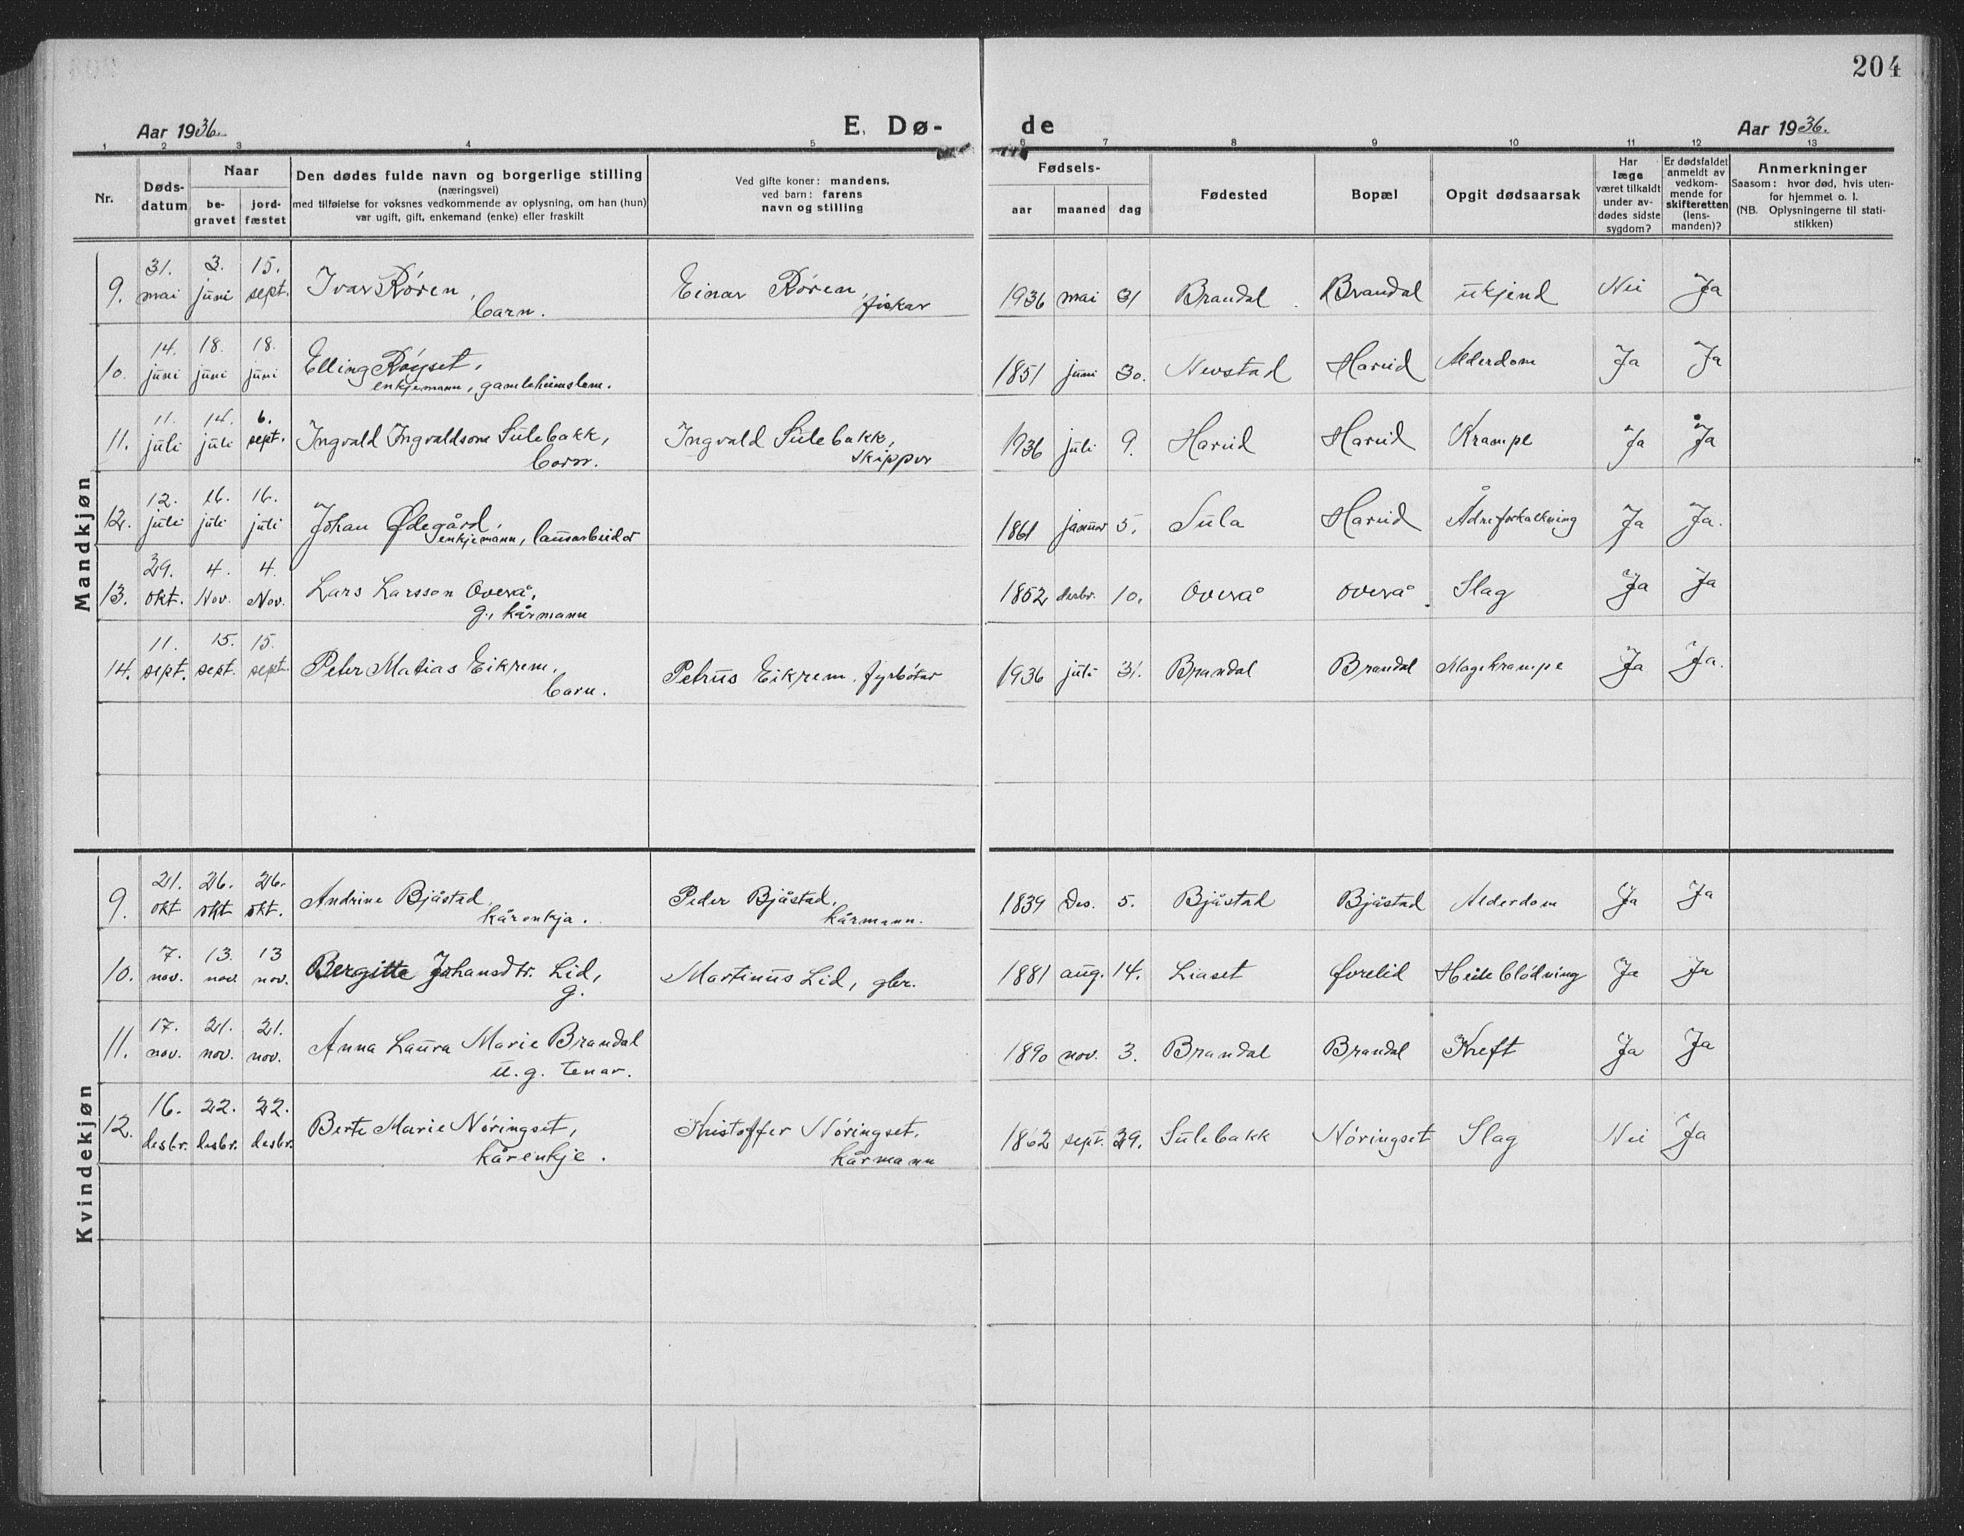 204
Aar 1936. E. Dø- de Aar 1936.
1 2 3 4 5 6 7 8 9 10 11 12 13
Nr. Døds-datum Naar be-gravet jord-fæstet Den dødes fulde navn og borgerlige stilling (næringsvei) med tilføielse for voksnes vedkommende av oplysning, om han (hun) var ugift, gift, enkemand (enke) eller fraskilt Ved gifte koner: mandens, ved barn: farens navn og stilling Fødsels- aar maaned dag Fødested Bopæl Opgit dødsaarsak Har læge været tilkaldt under av-dødes sidste sygdom? Er dødsfaldet anmeldt av vedkom-mende for skifteretten (lens-manden)? Anmerkninger Saasom: hvor død, hvis uten-for hjemmet o. l. (NB. Oplysningerne til stati-stikken)
Mandkjøn
9. 31. mai 3. juni 15. sept. Ivar Røren, barn. Einar Røren, fiskar 1936 mai 31 Brandal Brandal ukjend Nei Ja
10. 14. juni 18. juni 18. juni Elling Røyset, enkjemann, gamleheimslem. 1851 juni 30. Nevstad Hareid Alderdom Ja Ja
11. 11. juli 14. juli 6. sept. Ingvald Ingvaldson Sulebakk, barn. Ingvald Sulebakk, skippar 1936 juli 9. Hareid Hareid Krampe Ja Ja
12. 12. juli 16. juli 16. juli Johan Ødegård, enkjemann, lausarbeidar 1861 januar 5. Sula Hareid Ådreforkalkning Ja Ja.
13. 29. okt. 4. Nov. 4. Nov. Lars Larsson Overå, g., kårmann 1852 desbr. 10. Overå Overå Slag Ja Ja
14. 11. sept. 15. sept. 15. sept. Peter Matias Eikrem, barn. Petrus Eikrem, fyrbøtar 1936 juli 31. Brandal Brandal Magekrampe Ja Ja.
Kvindekjøn
9. 21. okt 26. okt 26. okt. Andrine Bjåstad, kårenkja. Peder Bjåstad, kårmann. 1839 Des. 5. Bjåstad Bjåstad Alderdom Ja Ja
10. 7. nov. 13. nov. 13 nov. Bergitte Johansdtr. Lid, g. Martinus Lid, gbr. 1881 aug. 14. Liaset Øvrelid Heileblødning Ja Ja
11. 17. nov. 21. nov. 21. nov. Anna Laura Marie Brandal u. g. tenar. 1890 nov. 3. Brandal Brandal Kreft Ja Ja
12. 16. desbr. 22. desbr. 22. desbr. Berte Marie Nøringset, kårenkje. Kristoffer Nøringset, kårmann 1862 sept. 29. Sulebakk Nøringset Slag Nei Ja